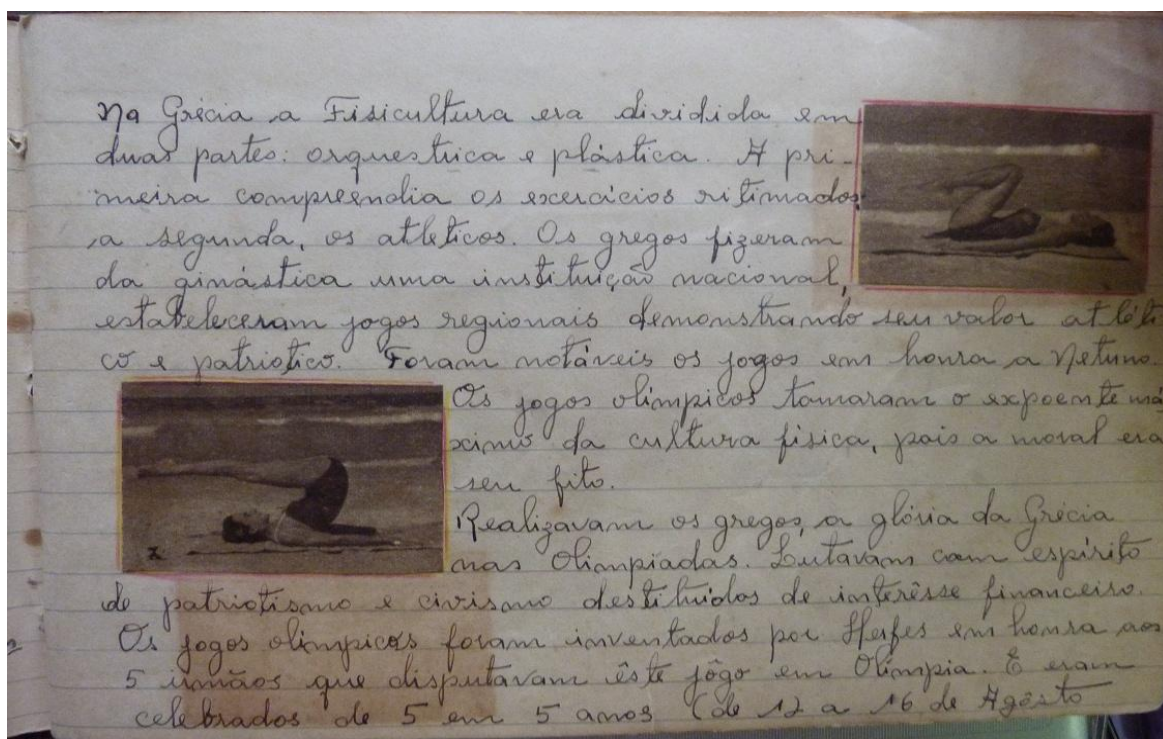 Na Grécia a Fisicultura era dividida em
duas partes: orquestrica e plástica. A pri-
meira compreendia os exercícios ritimados,
a segunda, os atleticos. Os gregos fizeram
da ginástica uma instituição nacional,
estabeleceram jogos regionais demonstrando seu valor atléti
co e patriotico. Foram notáveis os jogos em honra a Netuno.
Os jogos olímpicos tomaram o expoente má
ximo da cultura física, pois a moral era
seu fito.
Realizavam os gregos, a glória da Grécia
nas Olimpíadas. Lutavam com espírito
de patriotismo e civismo destituídos de interêsse financeiro.
Os jogos olimpicos foram inventados por em honra aos
5 irmãos que disputavam êste jôgo em Olímpia. E eram
celebrados de 5 em 5 anos (de 12 a 16 de Agôsto